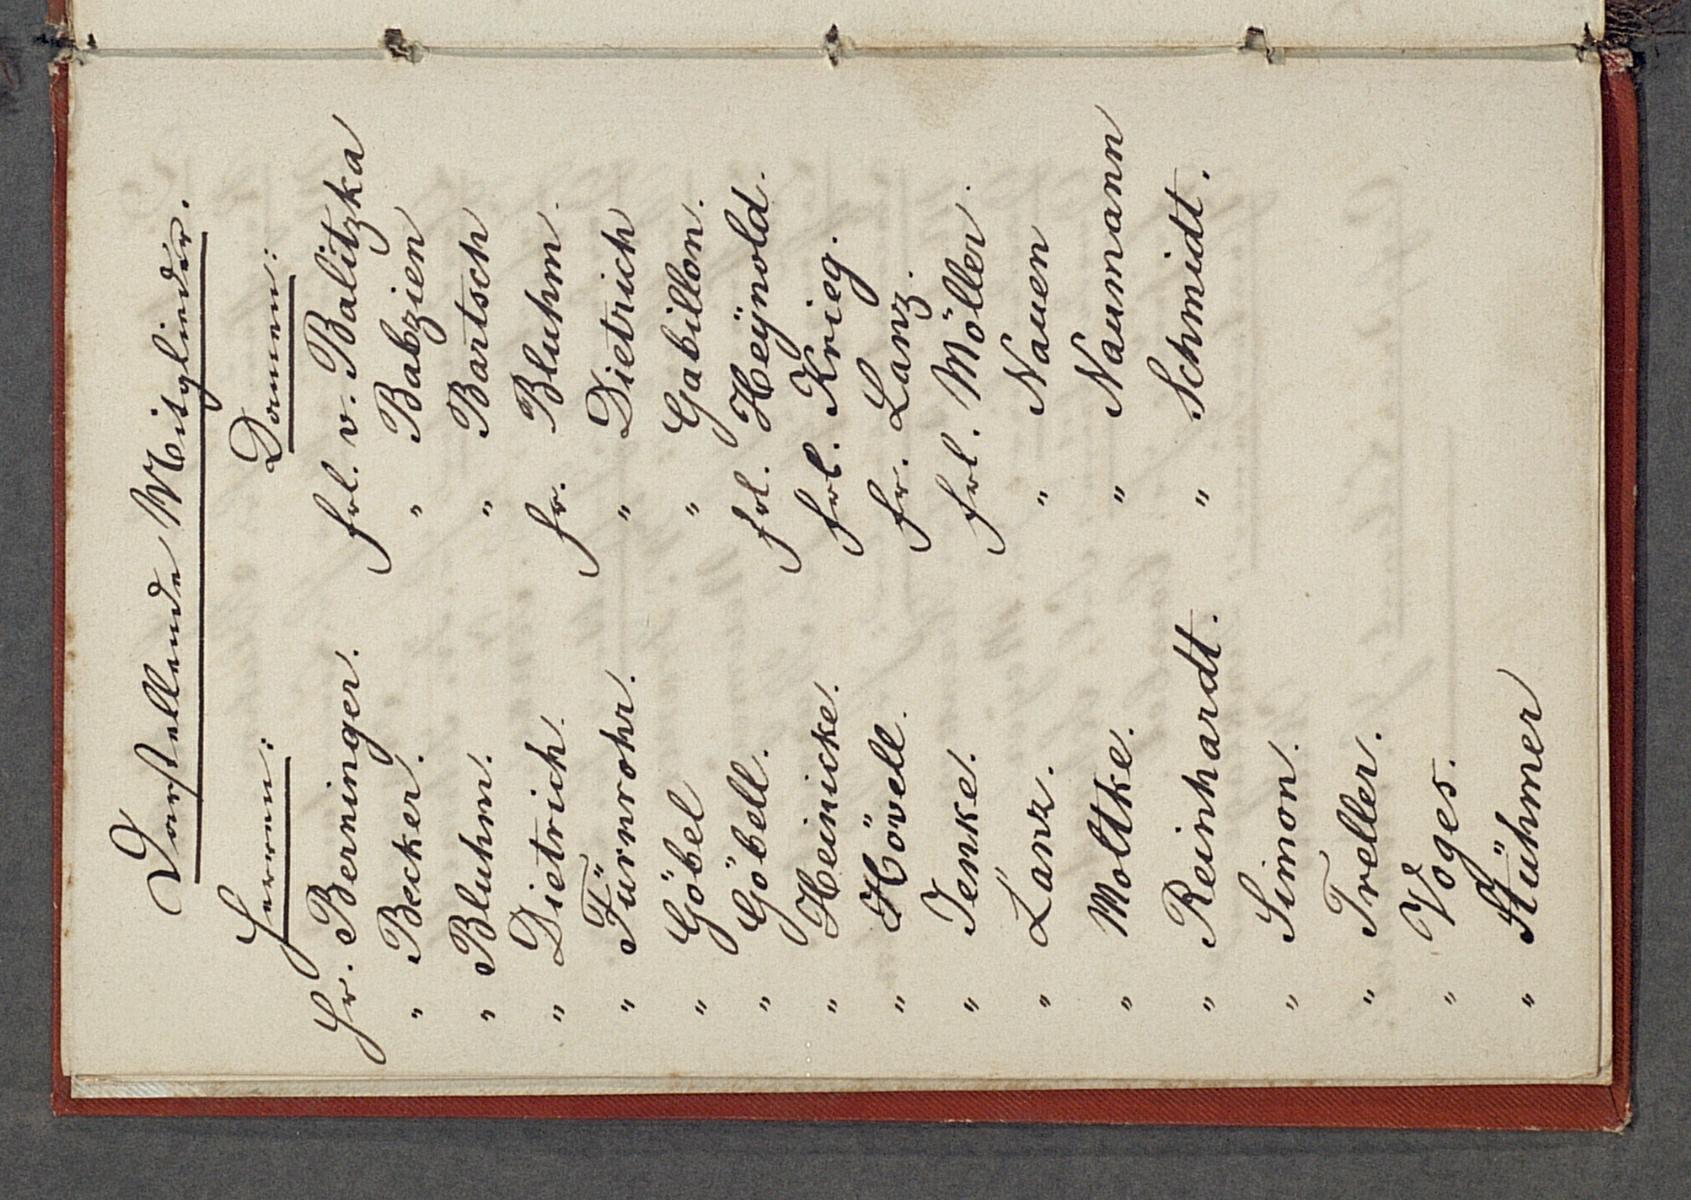 Darstellende Mitglieder.
Herren:
Hr. Berninger.
" Becker.
" Bluhm.
" Dietrich.
" Fürnrohr.
" Göbel
" Göbell.
" Heinicke.
" Hövell.
" Jenke.
" Lanz.
" Moltke.
" Reinhardt.
" Simon.
" Treller.
" Voges.
" Stühmer
Damen:
Frl. v. Balitzka
" Babzien
" Bartsch
Fr. Bluhm.
" Dietrich
" Gabillon.
Frl. Heÿnold.
Frl. Krieg.
Fr. Lanz.
Frl. Möller.
" Nauen
" Naumann
" Schmidt.